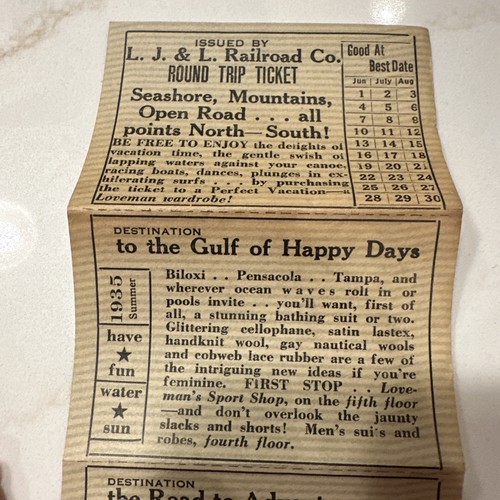 ISSUED BY
L. J. & L. Railroad Co.
ROUND TRIP TICKET
Seashore, Mountains,
Open Road . . . all
points North—South!
BE FREE TO ENJOY the delights of
vacation time, the gentle swish of
lapping waters against your canoe,
racing boats, dances, plunges in ex-
hilerating surfs . . . by purchasing
the ticket to a Perfect Vacation—a
Loveman wardrobe!
Good At
Best Date
Jun July Aug
1 2 3
4 5 6
7 8 9
10 11 12
13 14 15
16 17 18
19 20 21
22 23 24
25 26 27
28 29 30
DESTINATION
to the Gulf of Happy Days
1935
Summer
have
★
fun
water
★
sun
Biloxi . . Pensacola . . Tampa, and
wherever ocean waves roll in or
pools invite . . you'll want, first of
all, a stunning bathing suit or two.
Glittering cellophane, satin lastex,
handknit wool, gay nautical wools
and cobweb lace rubber are a few of
the intriguing new ideas if you're
feminine. FIRST STOP . . Love-
man's Sport Shop, on the fifth floor
—and don't overlook the jaunty
slacks and shorts! Men's suits and
robes, fourth floor.
DESTINATION
the Road to